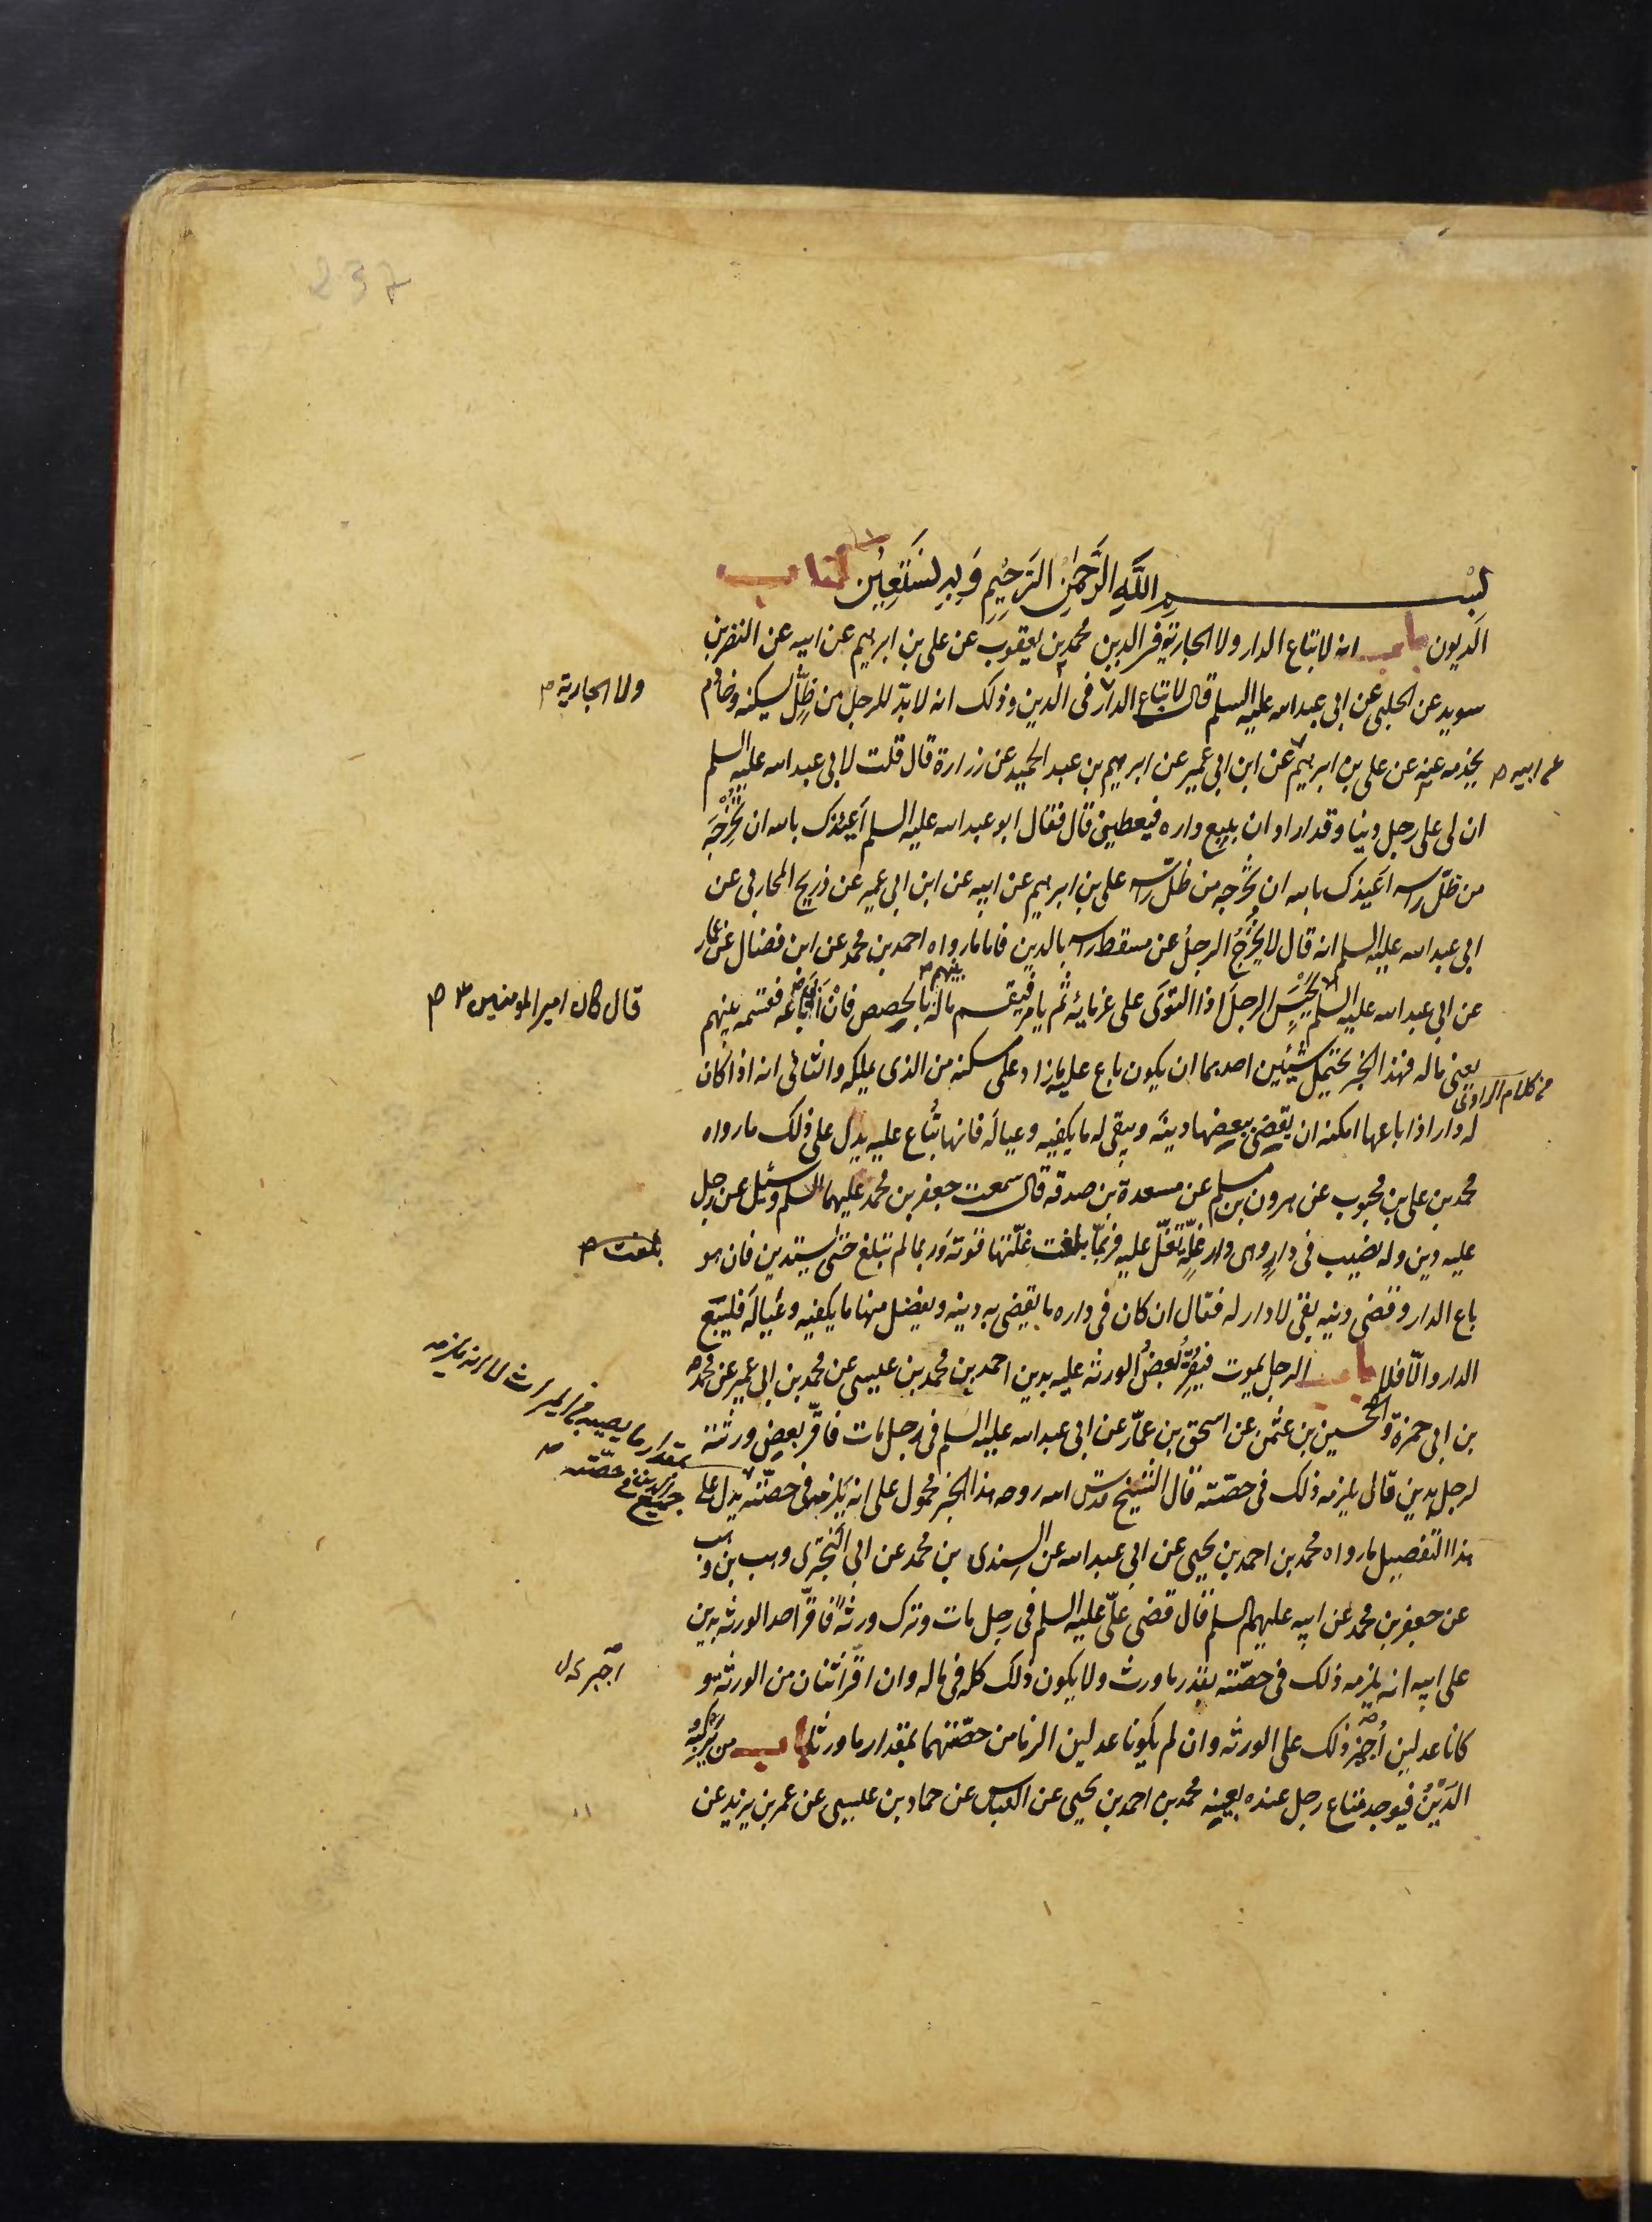 237
بسم الله الرحمن الرحيم وبه نستعين كتاب
الديون باب انه لا تباع الدار ولا الجارية فى الدين محمد بن يعقوب عن على بن ابرهيم عن ابيه عن النضر بن
سويد عن الحلبى عن ابى عبد الله عليه السلم قال لا تباع الدار فى الدين وذلك انه لا بدّ للرجل من ظلّ يسكنه وخادم
ولا الجارية ص
يخدمه عنه عن على بن ابرهيم عن ابن ابى عمير عن ابرهيم بن عبد الحميد عن زرارة قال قلت لابى عبد الله عليه السلم
عن ابيه ص
ان لى على رجل دينا وقد اراد ان يبيع داره فيعطينى قال فقال ابو عبد الله عليه السلم اعيذك بالله ان تخرجه
من ظلّ راسه اعيذك بالله ان تخرجه من ظل راسه على بن ابرهيم عن ابيه عن ابن ابى عمير عن ذريح المحاربى عن
ابى عبد الله عليه السلم انه قال لا يخرج الرجل عن مسقط راسه بالدين فاما ما رواه احمد بن محمد عن ابن فضال عن عمار
عن ابى عبد الله عليه السلم يحبس الرجل اذا التوى على غرمائه ثم يامر فيقسم ماله بينهم بالحصص فان ابى باعه فقسمه بينهم
قال كان امير المومنين ع ص
يعنى ماله فهذا الخبر يحتمل شيئين احدهما ان يكون باع عليه ما زاد على مسكنه من الذى يملكه والثانى انه اذا كان
من كلام الراوى
له دار اذا باعها امكنه ان يقضى ببعضها دينه ويبقى له ما يكفيه وعياله فانها تباع عليه يدل على ذلك ما رواه
محمد بن على بن محبوب عن هرون بن مسلم عن مسعدة بن صدقة قال سمعت جعفر بن محمد عليهما السلم وسئل عن رجل
عليه دين وله نصيب فى دار وهى دار غلّة تغلّ عليه فربمّا بلغت غلّتها قوته وربما لم تبلغ حتى يستدين فان هو
بلغت ص
باع الدار وقضى دينه بقى لا دار له فقال ان كان فى داره ما يقضى به دينه ويفضل منها ما يكفيه وعياله فليبع
الدار والّا فلا باب الرجل يموت فيقرّ بعض الورثة عليه بدين احمد بن محمد بن عيسى عن محمد بن ابى عمير عن محمد
بن ابى حمزة والحسين بن عثمن عن اسحق بن عمّار عن ابى عبد الله عليه السلم فى رجل مات فاقرّ بعض ورثته
لرجل بدين قال يلزمه ذلك فى حصّته قال الشيخ قدس الله روحه هذا الخبر محمول على انه يلزمه فى حصّته يدل على
بمقدار ما يصيبه من الميراث لا انه يلزمه
جميع الدين فى حصّته ص
هذا التفصيل ما رواه محمد بن احمد بن يحيى عن ابى عبد الله عن السندى بن محمد عن ابى البخترى وهب بن وهب
عن جعفر بن محمد عن ابيه عليهم السلم قال قضى علىّ عليه السلم فى رجل مات وترك ورثة فاقرّ احد الورثة بدين
على ابيه انه يلزمه ذلك فى حصّته بقدر ما ورث ولا يكون ذلك كله فى ماله وان اقرّ اثنان من الورثة وهو
كانا عدلين اجيز ذلك على الورثة وان لم يكونا عدلين الزما من حصّتهما بمقدار ما ورثا باب من يركبه
الدّين فيوجد متاع رجل عنده بعينه محمد بن احمد بن يحيى عن العباس عن حماد بن عيسى عن عمر بن يزيد عن